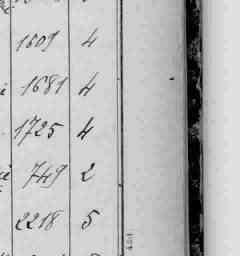 1609 4
1681 4
1725 4
749 2
2218 5